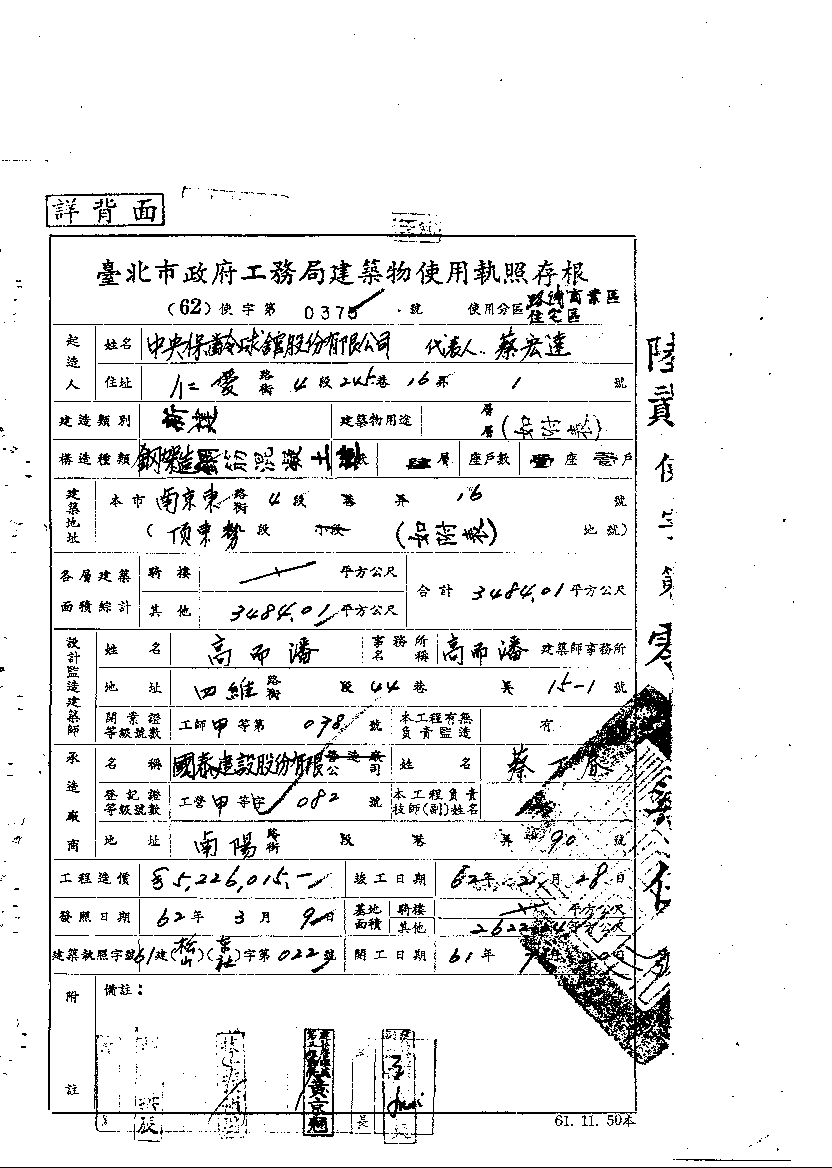 詳背面
臺北市政府工務局建築物使用執照存根
(62)使字第 0375 號 使用分區 路線商業區 住宅區
起造人 姓名 中央保齡球舘股份有限公司 代表人 蔡宏達
住址 仁愛 路街 4 段 245 巷 16 弄 1 號
建造類別 建築物用途 層 層 (如附表)
構造種類 鋼 造 筋混凝土 層 座戶數 座 戶
建築地址 本市 南京東 路街 4 段 巷 弄 16 號
(頂東勢 段 小段 (如附表) 地號)
各層建築面積綜計 騎樓 平方公尺 合計 3484.01 平方公尺
其他 3484.01 平方公尺
設計監造建築師 姓名 高而潘 事務所名稱 高而潘 建築師事務所
地址 四維 路街 段 44 巷 弄 15-1 號
開業證等級號數 工師 甲 等第 078 號 本工程有無負責監造 有
承造廠商 名稱 國泰建設股份有限公司 姓名 蔡
登記證等級號數 工營 甲 等字 082 號 本工程負責技師(副)姓名
地址 南陽 路街 段 巷 弄 90 號
工程造價 5,226,015.- 竣工日期 62 年 2 月 28 日
發照日期 62 年 3 月 9 日 基地面積 騎樓 平方公尺
其他 平方公尺
建築執照字號 61 建(松山)( )字第 022 號 開工日期 61 年
附註 備註：
黃京翹
長
61. 11. 50本
陸貳使字第零